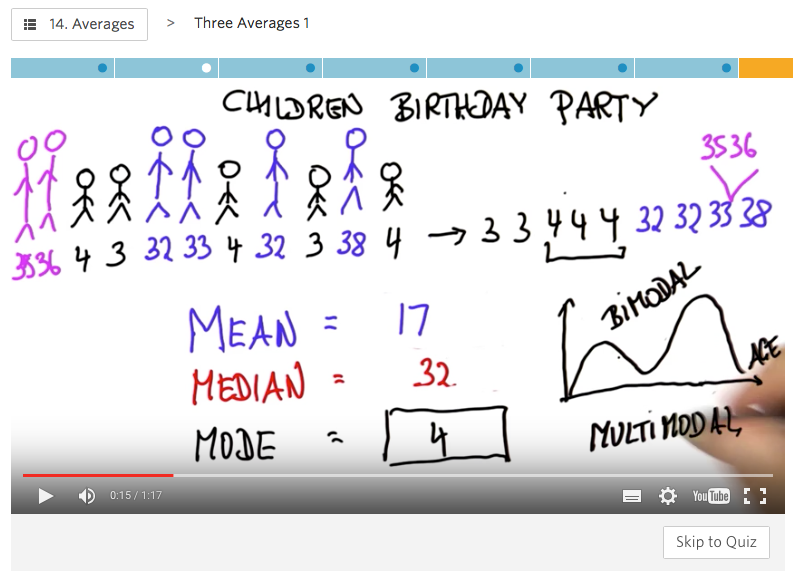 14. Averages > Three Averages 1
CHILDREN BIRTHDAY PARTY
3536
3536 4 3 32 33 4 32 3 38 4 → 3 3 4 4 4 32 32 33 38
MEAN = 17
BIMODAL
AGE
MEDIAN = 32
MODE = 4
MULTIMODAL
0:15 / 1:17
YouTube
Skip to Quiz